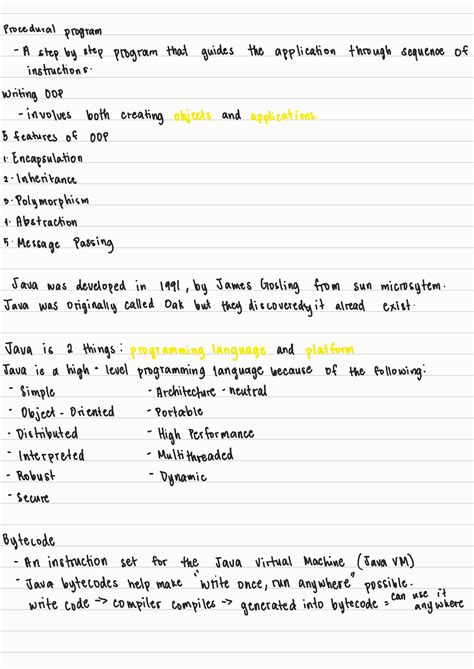 Procedural program
- A step by step program that guides the application through sequence of
instructions.
Writing OOP
- involves both creating objects and applications
5 features of OOP
1. Encapsulation
2. Inheritance
3. Polymorphism
4. Abstraction
5. Message Passing
Java was developed in 1991, by James Gosling from sun microsytem.
Java was originally called Oak but they discoveredy it alread exist.
Java is 2 things: programming language and platform
Java is a high - level programming language because of the following:
- Simple - Architecture - neutral
- Object - Oriented - Portable
- Distributed - High Performance
- Interpreted - Multithreaded
- Robust - Dynamic
- Secure
Bytecode
- An instruction set for the Java Virtual Machine (Java VM)
- Java bytecodes help make "write once, run anywhere" possible.
write code → compiler compiles → generated into bytecode = can use it anywhere